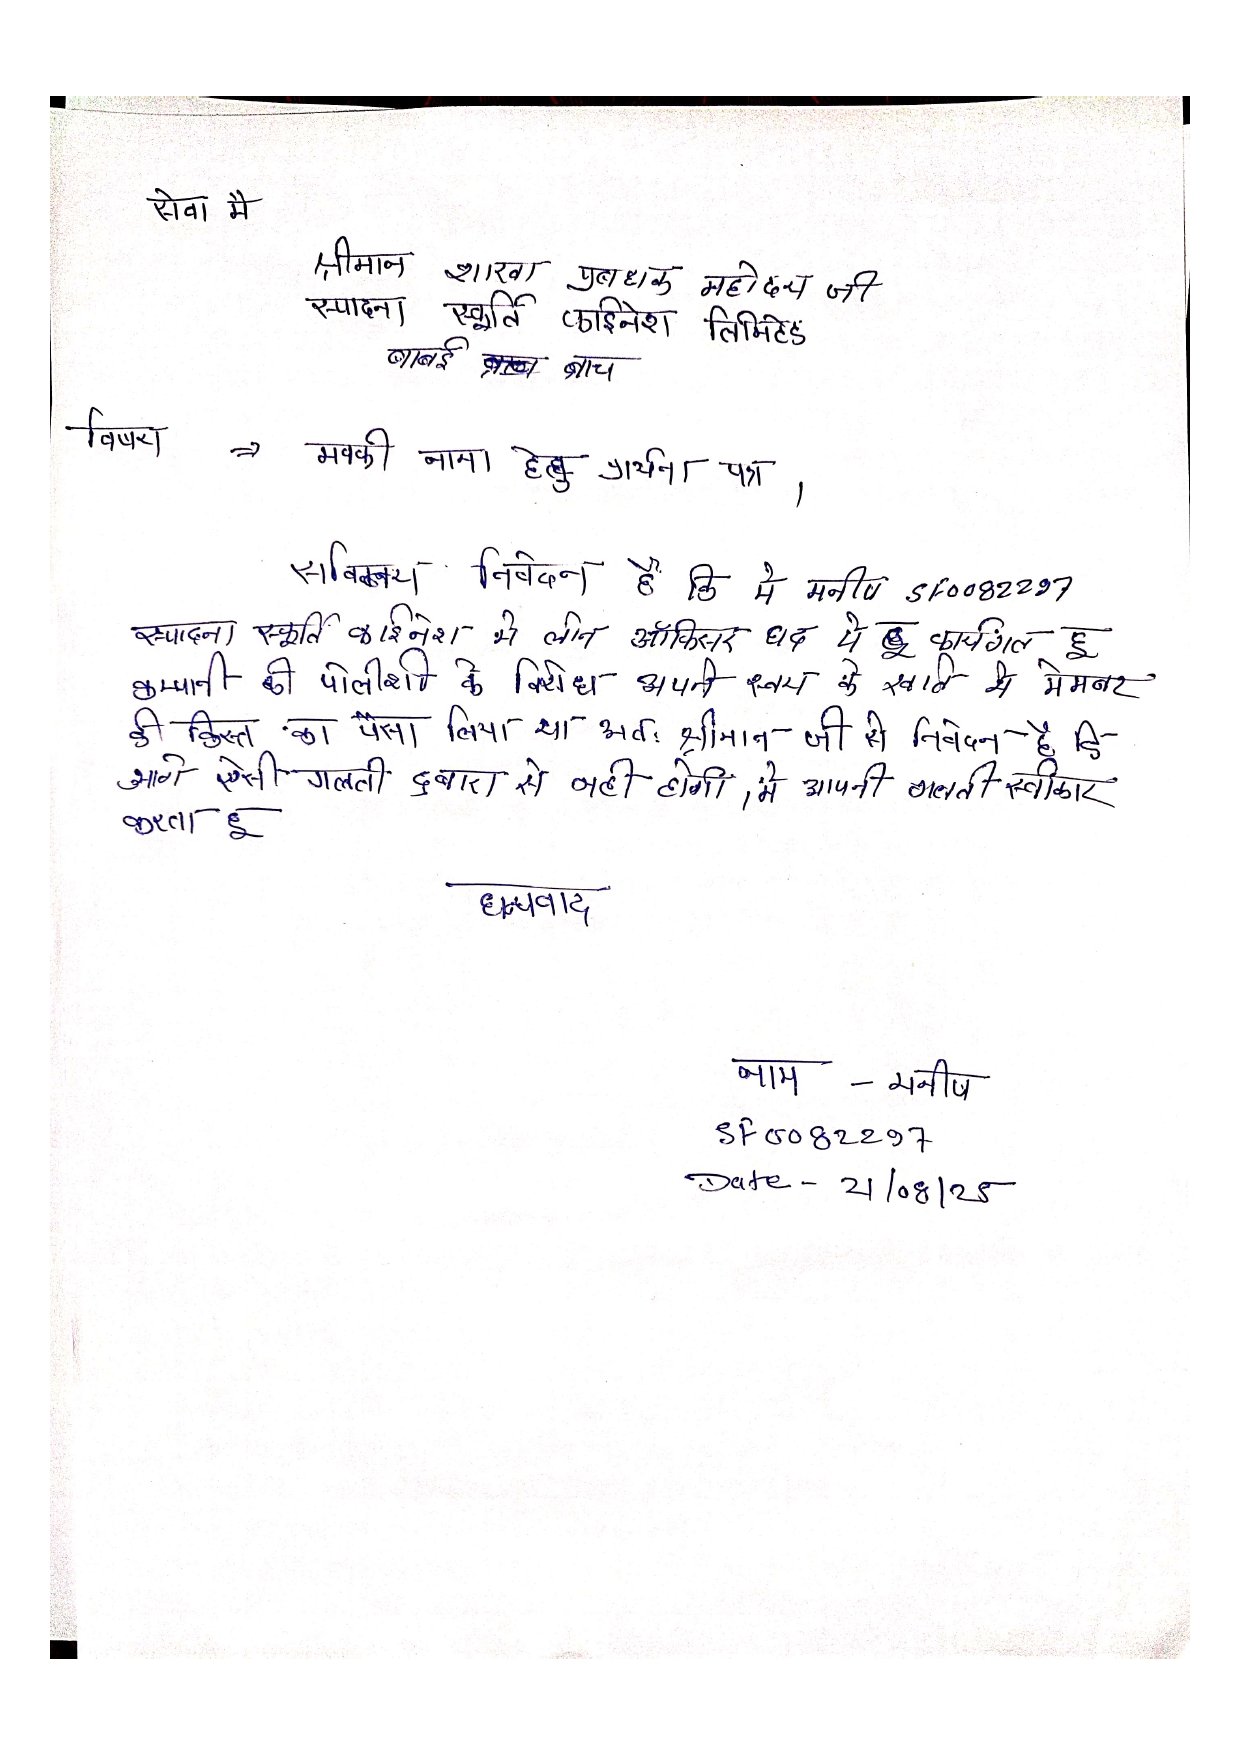 सेवा मै
श्रीमान शाखा प्रबधक महोदय जी
स्पादना स्फूर्ति फाइनेश लिमिटेड
बाबई ब्राच
विषय ⇒ मक्की नामा हेतु प्रार्थना पत्र ,
सविनय निवेदन है कि मे मनीष SF0082297
स्पादना स्फूर्ति फाईनेश मे लोन ऑफिसर पद मे कार्यगत हू
कम्पानी की पोलीशी के विरोध अपनी स्वय के खाते मे मेमबर
की किस्त का पैसा लिया था अतः श्रीमान जी से निवेदन है कि
आगे ऐसी गलती दुबारा से नही होगी, मे आपनी गलती स्वीकार
करता हू
धन्यवाद
नाम - मनीष
SF0082297
Date - 21/08/25